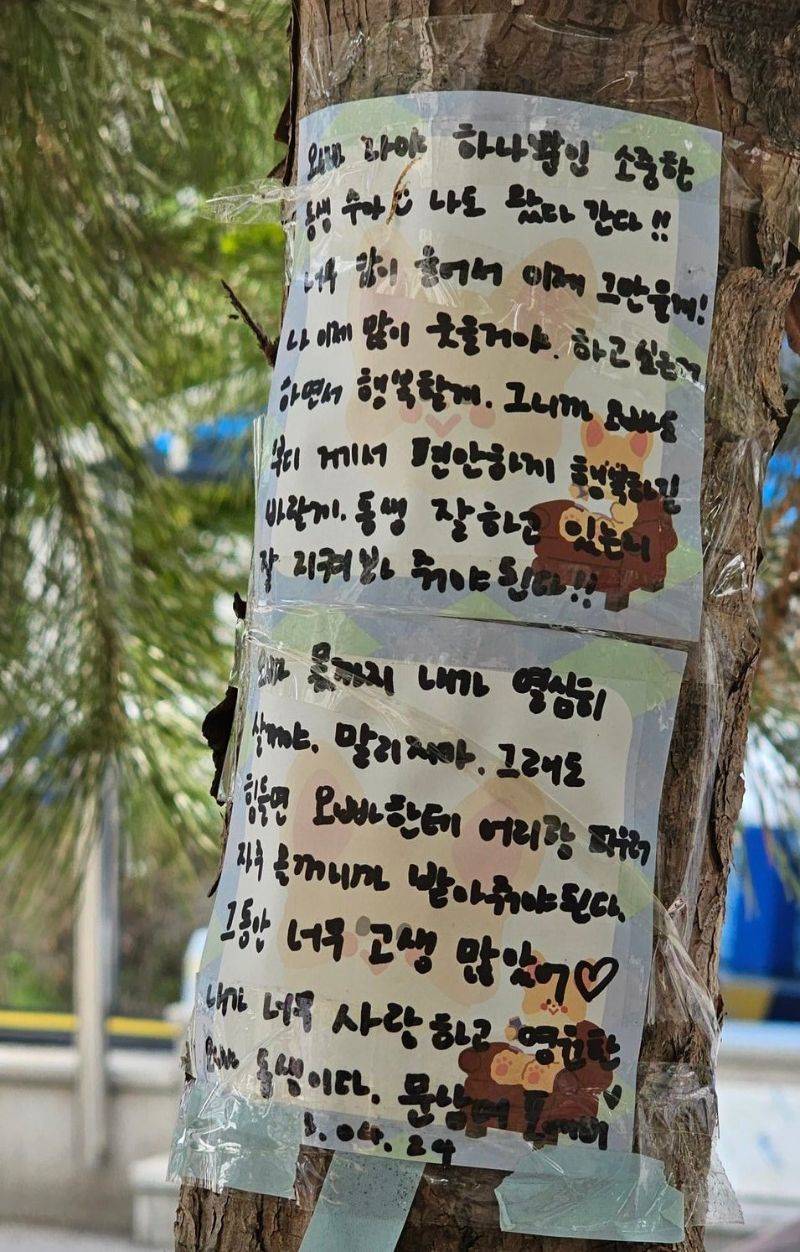 오빠 나야 하나뿐인 소중한
동생 수아 나도 왔다 간다!!
너무 많이 울어서 이제 그만울게!
나 이제 많이 웃을거야. 하고싶은거
하면서 행복할게. 그니까 오빠도
부디 거기서 편안하게 행복하길
바랄게. 동생 잘하고 있는지
잘 지켜봐 줘야된다!!
오빠 몫까지 내가 열심히
살꺼야. 말리지마. 그래도
힘들면 오빠한테 어리광 피우러
자주 올꺼니까 받아줘야된다.
그동안 너무 고생 많았어♡
내가 너무 사랑하고 영원한
오빠 동생이다.
.04.24